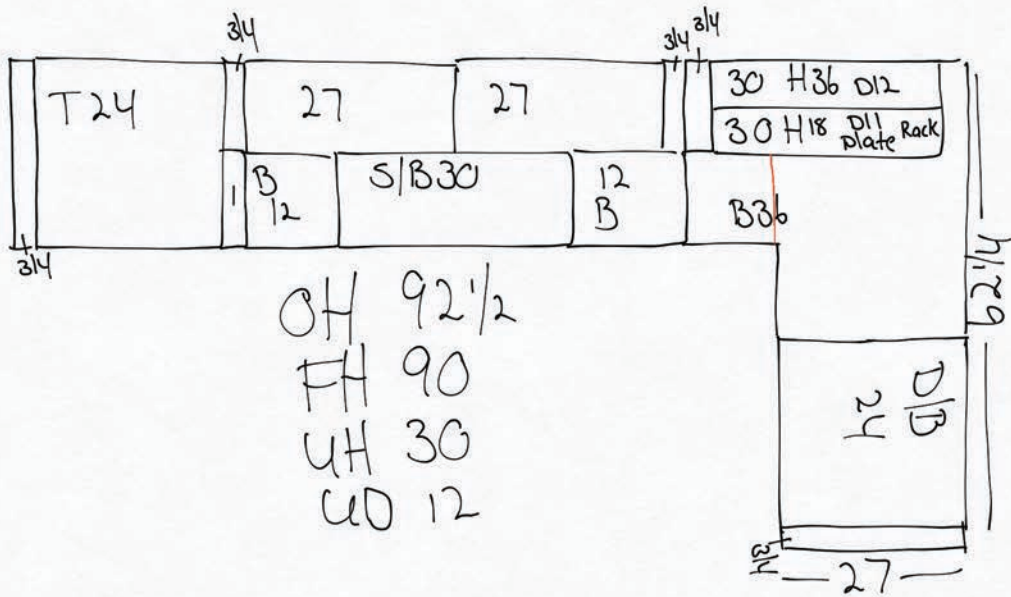 3/4
3/4
3/4
T24
27
27
30 H36 D12
30 H18 D11 Plate Rack
B 12
S/B30
12 B
B36
3/4
62 1/4
OH 92 1/2
FH 90
UH 30
UD 12
D/B 24
3/4
27